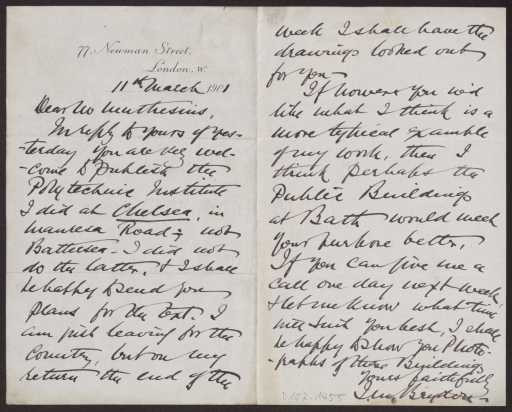 77, Newman Street,
London, W.
11th March 1901
Dear Mr Muthesius,
In reply to yours of yes-
-terday you are very wel-
-come to publish the
Polytechnic Institute
I did at Chelsea, in
Manresa Road; not
Battersea - I did not
do the latter, & I shall
be happy to send you
plans for the text. I
am just leaving for the
Country, but on my
return the end of the
week I shall have the
drawings looked out
for you
If however you wd
like what I think is a
more typical example
of my work, then I
think perhaps the
Public Buildings
at Bath would meet
your purpose better.
If you can give me a
call one day next week,
& let me know what time
will suit you best, I shall
be happy to show you Photo-
-graphs of these Buildings
Yours faithfully
J. M. Brydon
D 102-1455